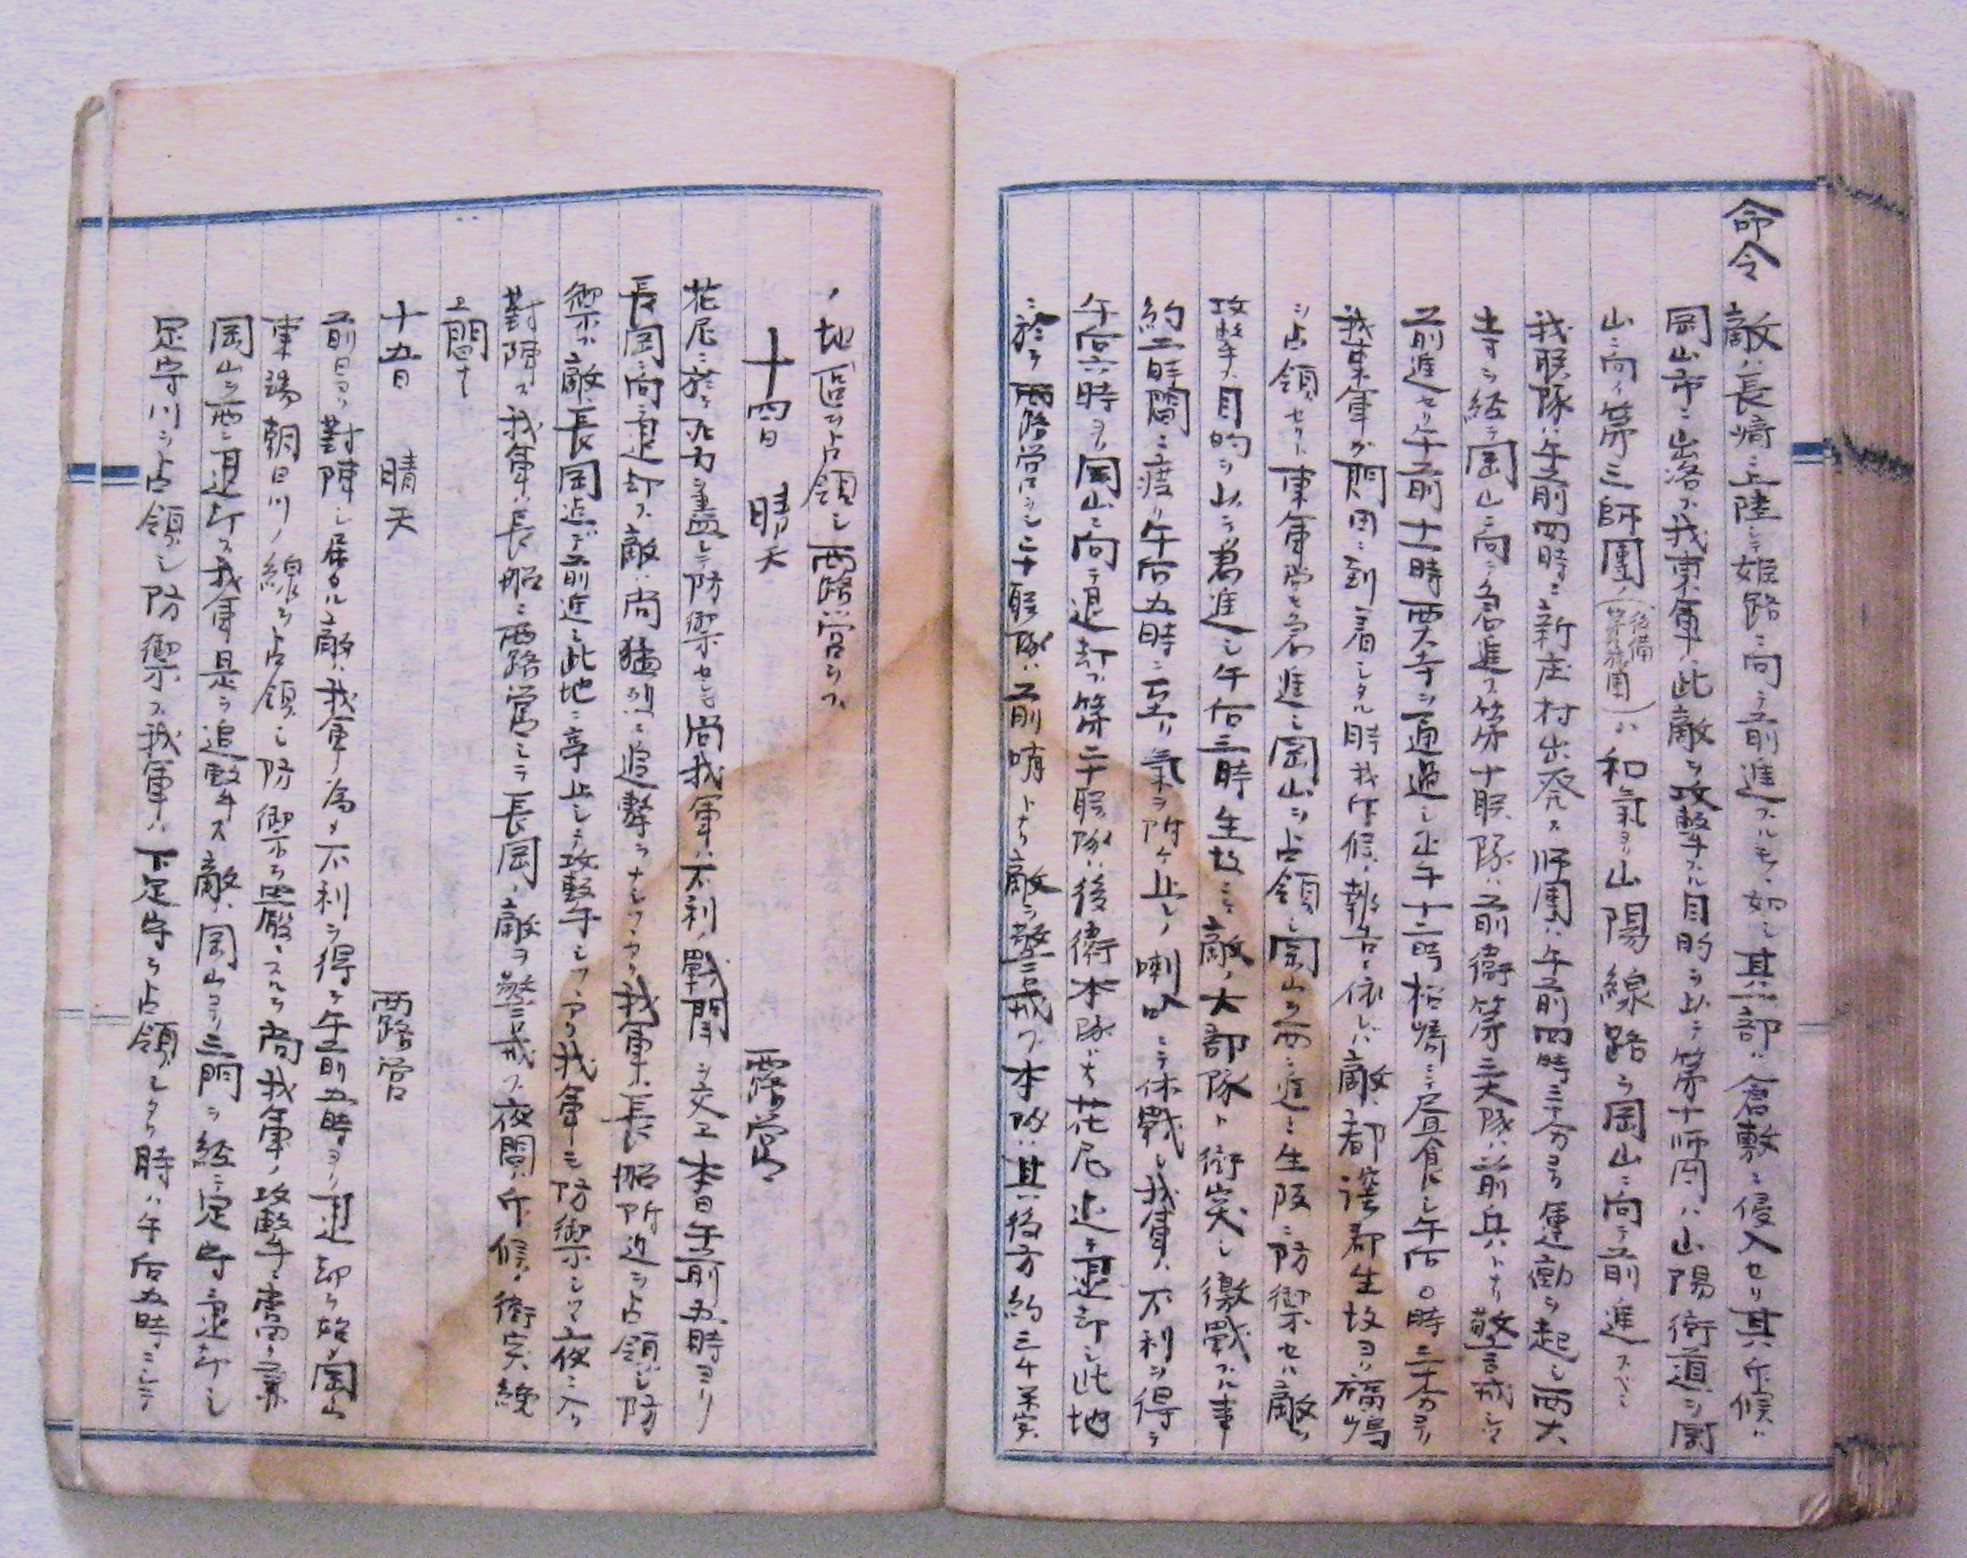 命令 敵ハ長崎ニ上陸シテ姫路ニ向テ前進スルモノヽ如シ其一部ハ倉敷ニ侵入セリ其斥候ハ
岡山市ニ出沒ス我東軍ハ此敵ヲ攻撃スル目的ヲ以テ第十師団ハ山陽街道ヲ岡
山ニ向イ第三師團(後備第 旅團)ハ和氣ヨリ山陽線路ヲ岡山ニ向テ前進スベシ
我聯隊ハ午前四時ニ新庄村出発ス師團ハ午前四時三十分ヨリ運動ヲ起シ西大
寺ヲ経テ岡山ニ向テ急進ス第十聯隊ハ前衛第三大隊ハ前兵トナリ警戒シテ
前進セリ午前十一時西大寺ヲ通過シ正午十二時松崎ニテ昼食シ午后〇時三十分ヨリ
我東軍ガ門田ニ到着シタル時我斥候ノ報告ニ依レバ敵ハ都窪郡生坂ヨリ福嶋
ヲ占領セリト東軍尚モ急進シ岡山ヲ占領シ岡山ヲ西ニ進ミ生阪ニ防禦セル敵ヲ
攻撃ス目的ヲ以テ急進シ午后三時生坂ニテ敵ノ大部隊ト衝突シ激戰スル事
約二時間ニ渡リ午后五時ニ至リ氣ヲ附ケ止レノ喇叭ニテ休戰シ我軍ハ不利ヲ得テ
午后六時ヨリ岡山ニ向テ退却ス第二十聯隊ハ後衛本隊トナリ花尻迄テ退却シ此地
ニ於テ露営ヲシ二十聯隊ハ前哨トナリ敵ヲ警戒ス本隊ハ其後方約三千米突
ノ地區ヲ占領シ露営ヲシス
十四日 晴天 露営
花尻ニ於テ死力ヲ盡シテ防禦セシモ尚我軍ハ不利ノ戰闘ヲ交エ本日午前五時ヨリ
長岡ニ向テ退却ス敵ハ尚猛烈ニ追撃ヲナシツヽアリ我軍ハ長船附近ヲ占領シ防
禦ス敵ハ長岡迄デ前進シ此地ニ停止シテ攻撃シツヽアリ我軍モ防禦シツヽ夜ニ入リ
對陣ス我軍ハ長船ニ露営シテ長岡ノ敵ヲ警戒ス夜間ハ斥候ノ衝突絶
エ間ナシ
十五日 晴天 露営
前日ヨリ對陣シ居タル敵ハ我軍ノ為メ不利ヲ得テ午前五時ヨリ退却ヲ始メ岡山
東端朝日川ノ線ヲ占領シ防禦ヲ嚴ニスルモ尚我軍ノ攻撃ニ
岡山ヲ西ニ退却ス我軍ハ是ヲ追撃ス敵ハ岡山ヨリ三門ヲ経テ足守ニ退却シ
足守川ヲ占領シ防禦ス我軍ハ下足守ヲ占領シタル時ハ午后五時ニシテ